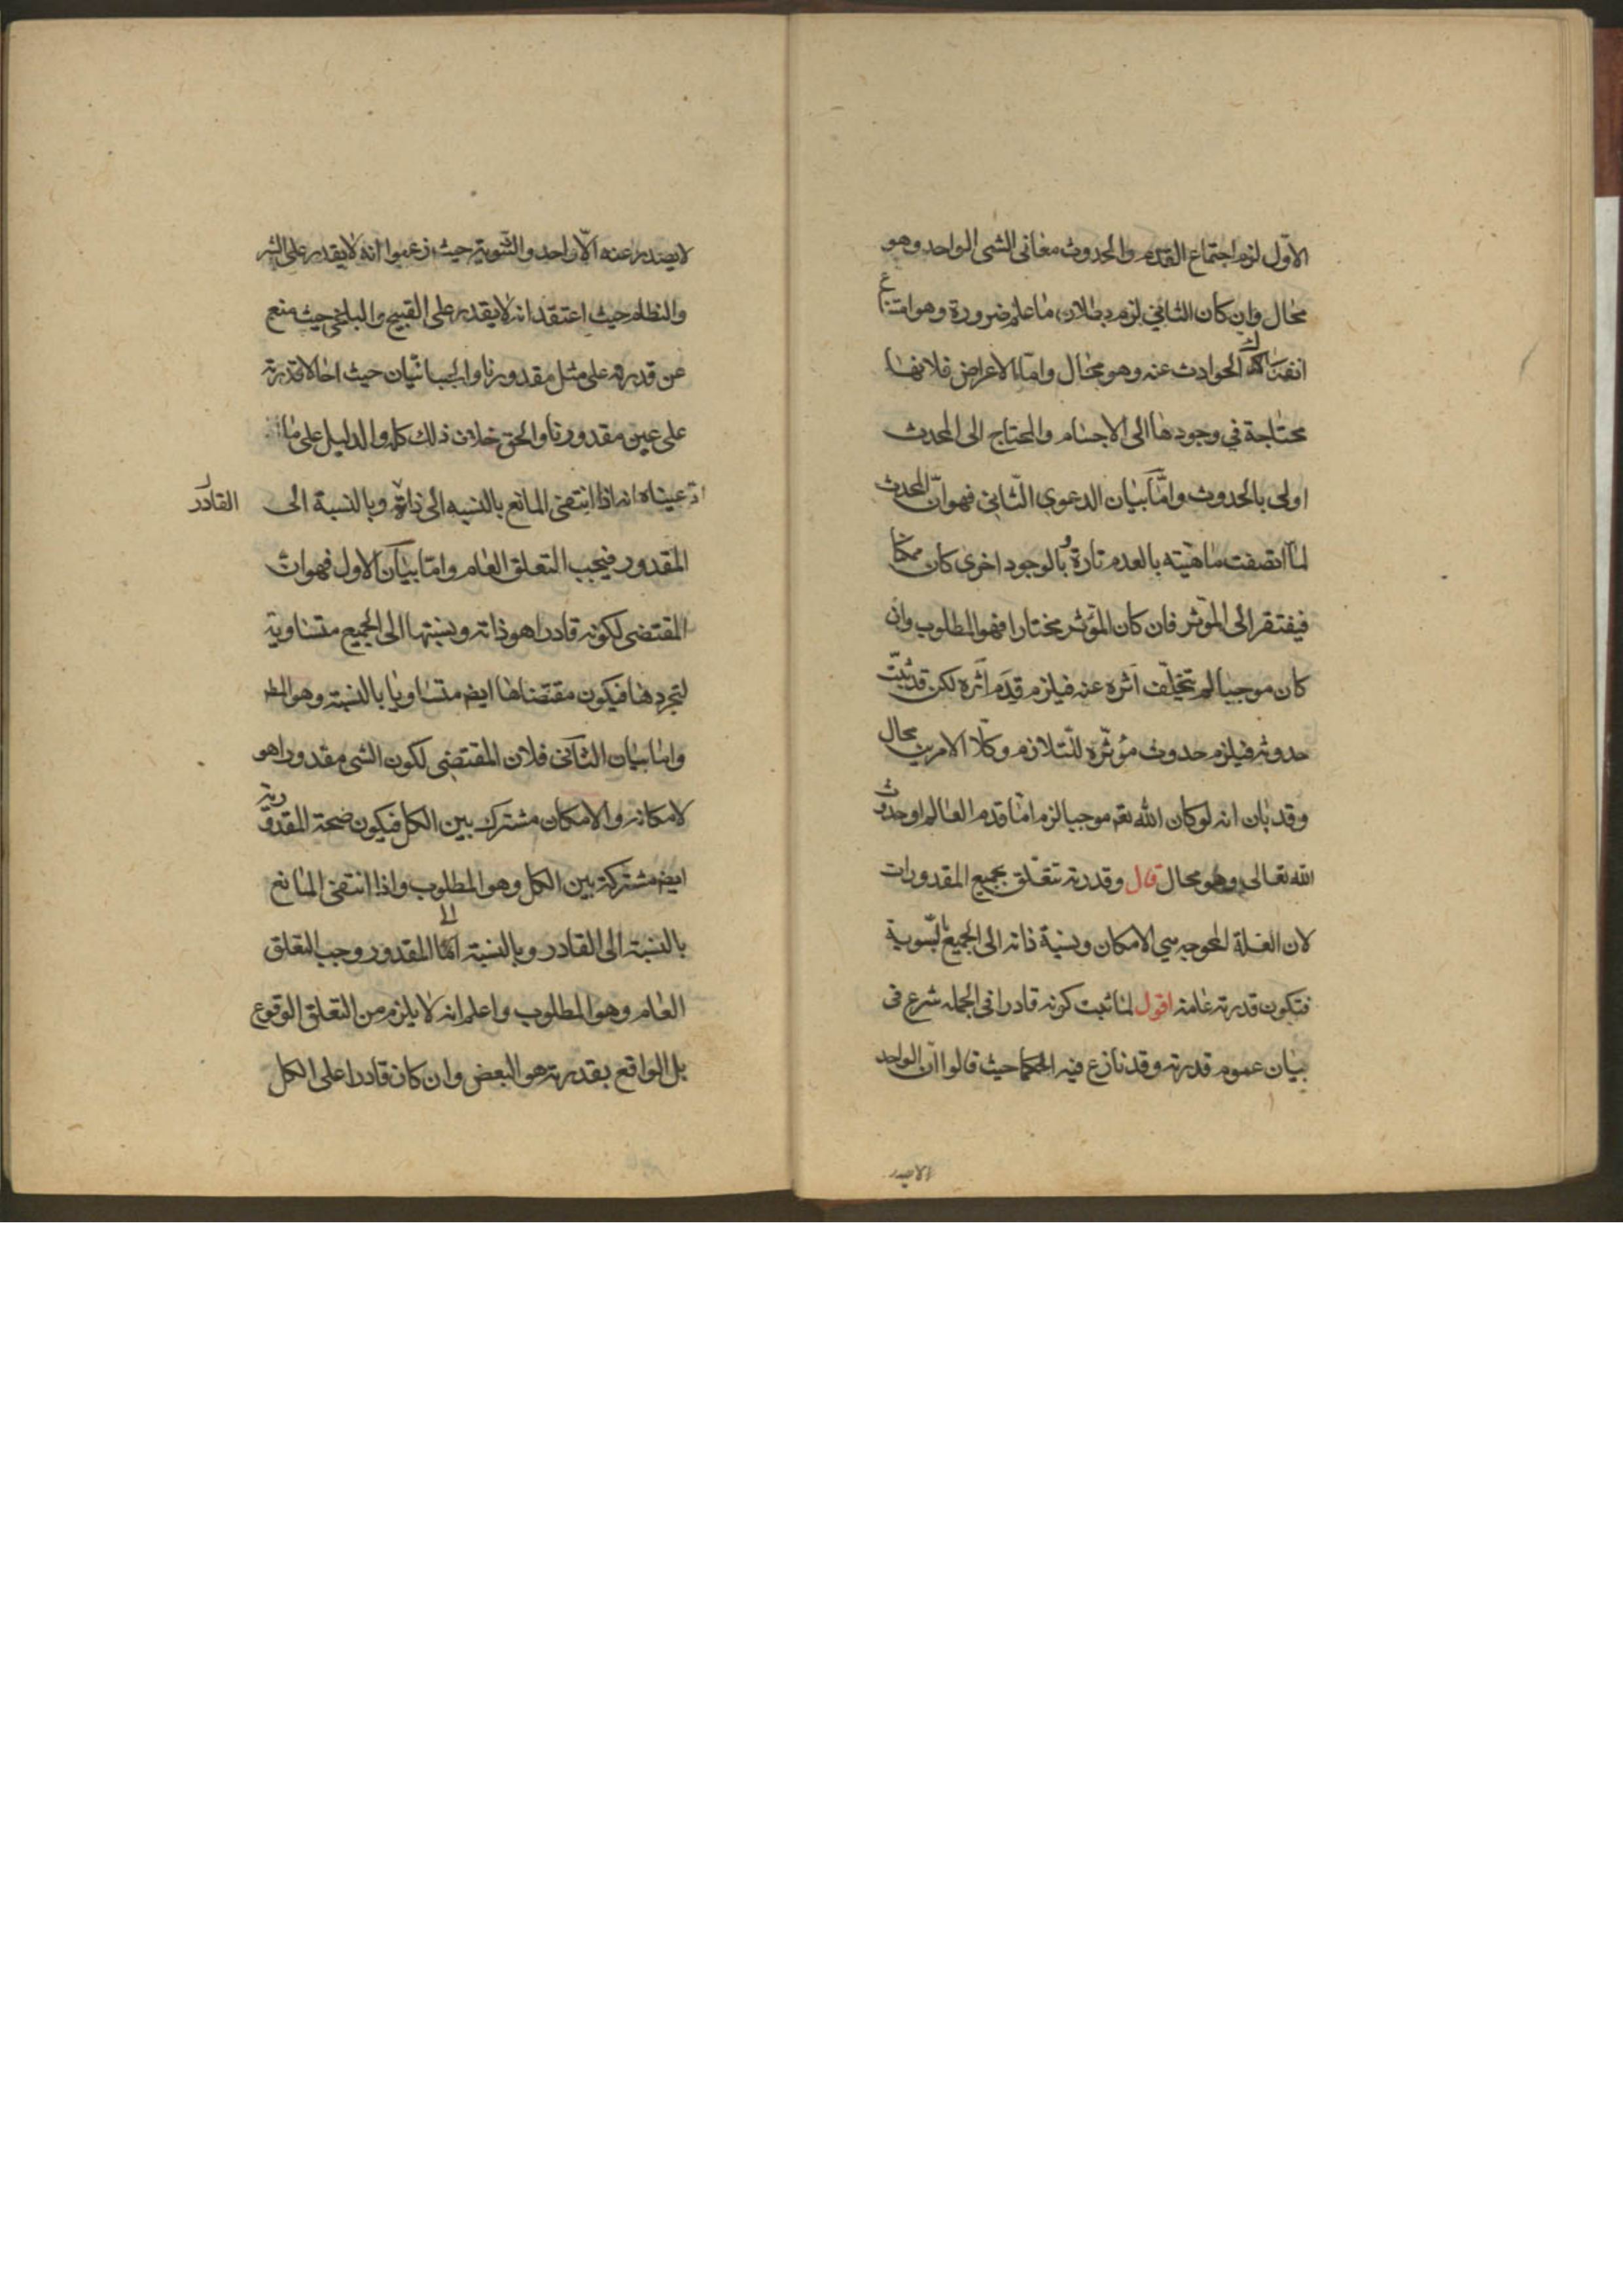 الاوّل لزم اجتماع القدم والحدوث معا فى الشى الواحد وهو
محال وان كان الثاني لزم بطلان ما علم ضرورة وهو امتناع
انفكاك الحوادث عنه وهو محال وامّا الاعراض فلانها
محتاجة في وجودها الى الاجسام والمحتاج الى المحدث
اولى بالحدوث وامّا بيان الدعوى الثّانى فهو انّ المحدث
لما اتصفت ماهيته بالعدم تارة وبالوجود اخرى كان ممكنا
فيفتقر الى المؤثر فان كان المؤثر مختارا فهو المطلوب وان
كان موجبا لم يتخلّف اثره عنه فيلزم قدم اثره لكن قد ثبت
حدوثه فيلزم حدوث مؤثّره للتّلازم وكلا الامرين محال
وقد بان انه لو كان الله تعه موجبا لزم امّا قدم العالم او حدوث
الله تعالى وهو محال قال وقدرته تتعلّق بجميع المقدورات
لان العلة المحوجه هي الامكان ونسبة ذاته الى الجميع بالسّوية
فتكون قدرته عامة اقول لما ثبت كونه قادرا فى الجمله شرع فى
بيان عموم قدرته وقد نازع فيه الحكما حيث قالوا انّ الواحد
لا يصدر عنه الّا واحد والثنوية حيث زعموا انه لا يقدر على الشر
والنظام حيث اعتقد انه لا يقدر على القبيح والبلخى حيث منع
من قدرته على مثل مقدورنا والجبائيان حيث احالا قدرته
على عين مقدورنا والحق خلاف ذلك كله والدليل على ما
ادّعيناه انه اذا انتفى المانع بالنسبه الى ذاته وبالنسبة الى
القادر
المقدور فيجب التعلق العام وامّا بيان الاول فهو ان
المقتضى لكونه قادرا هو ذاته ونسبتها الى الجميع متساوية
لتجردها فيكون مقتضاها ايض متساويا بالنسبة وهو المط
واما بيان الثانى فلان المقتضى لكون الشى مقدورا هو
لامكانه والامكان مشترك بين الكل فيكون صحة المقدورية
ايض مشتركة بين الكل وهو المطلوب واذا انتفى المانع
بالنسبة الى القادر وبالنسبة الى المقدور وجب التعلق
العام وهو المطلوب واعلم انه لا يلزم من التعلق الوقوع
بل الواقع بقدرته هو البعض وان كان قادرا على الكل